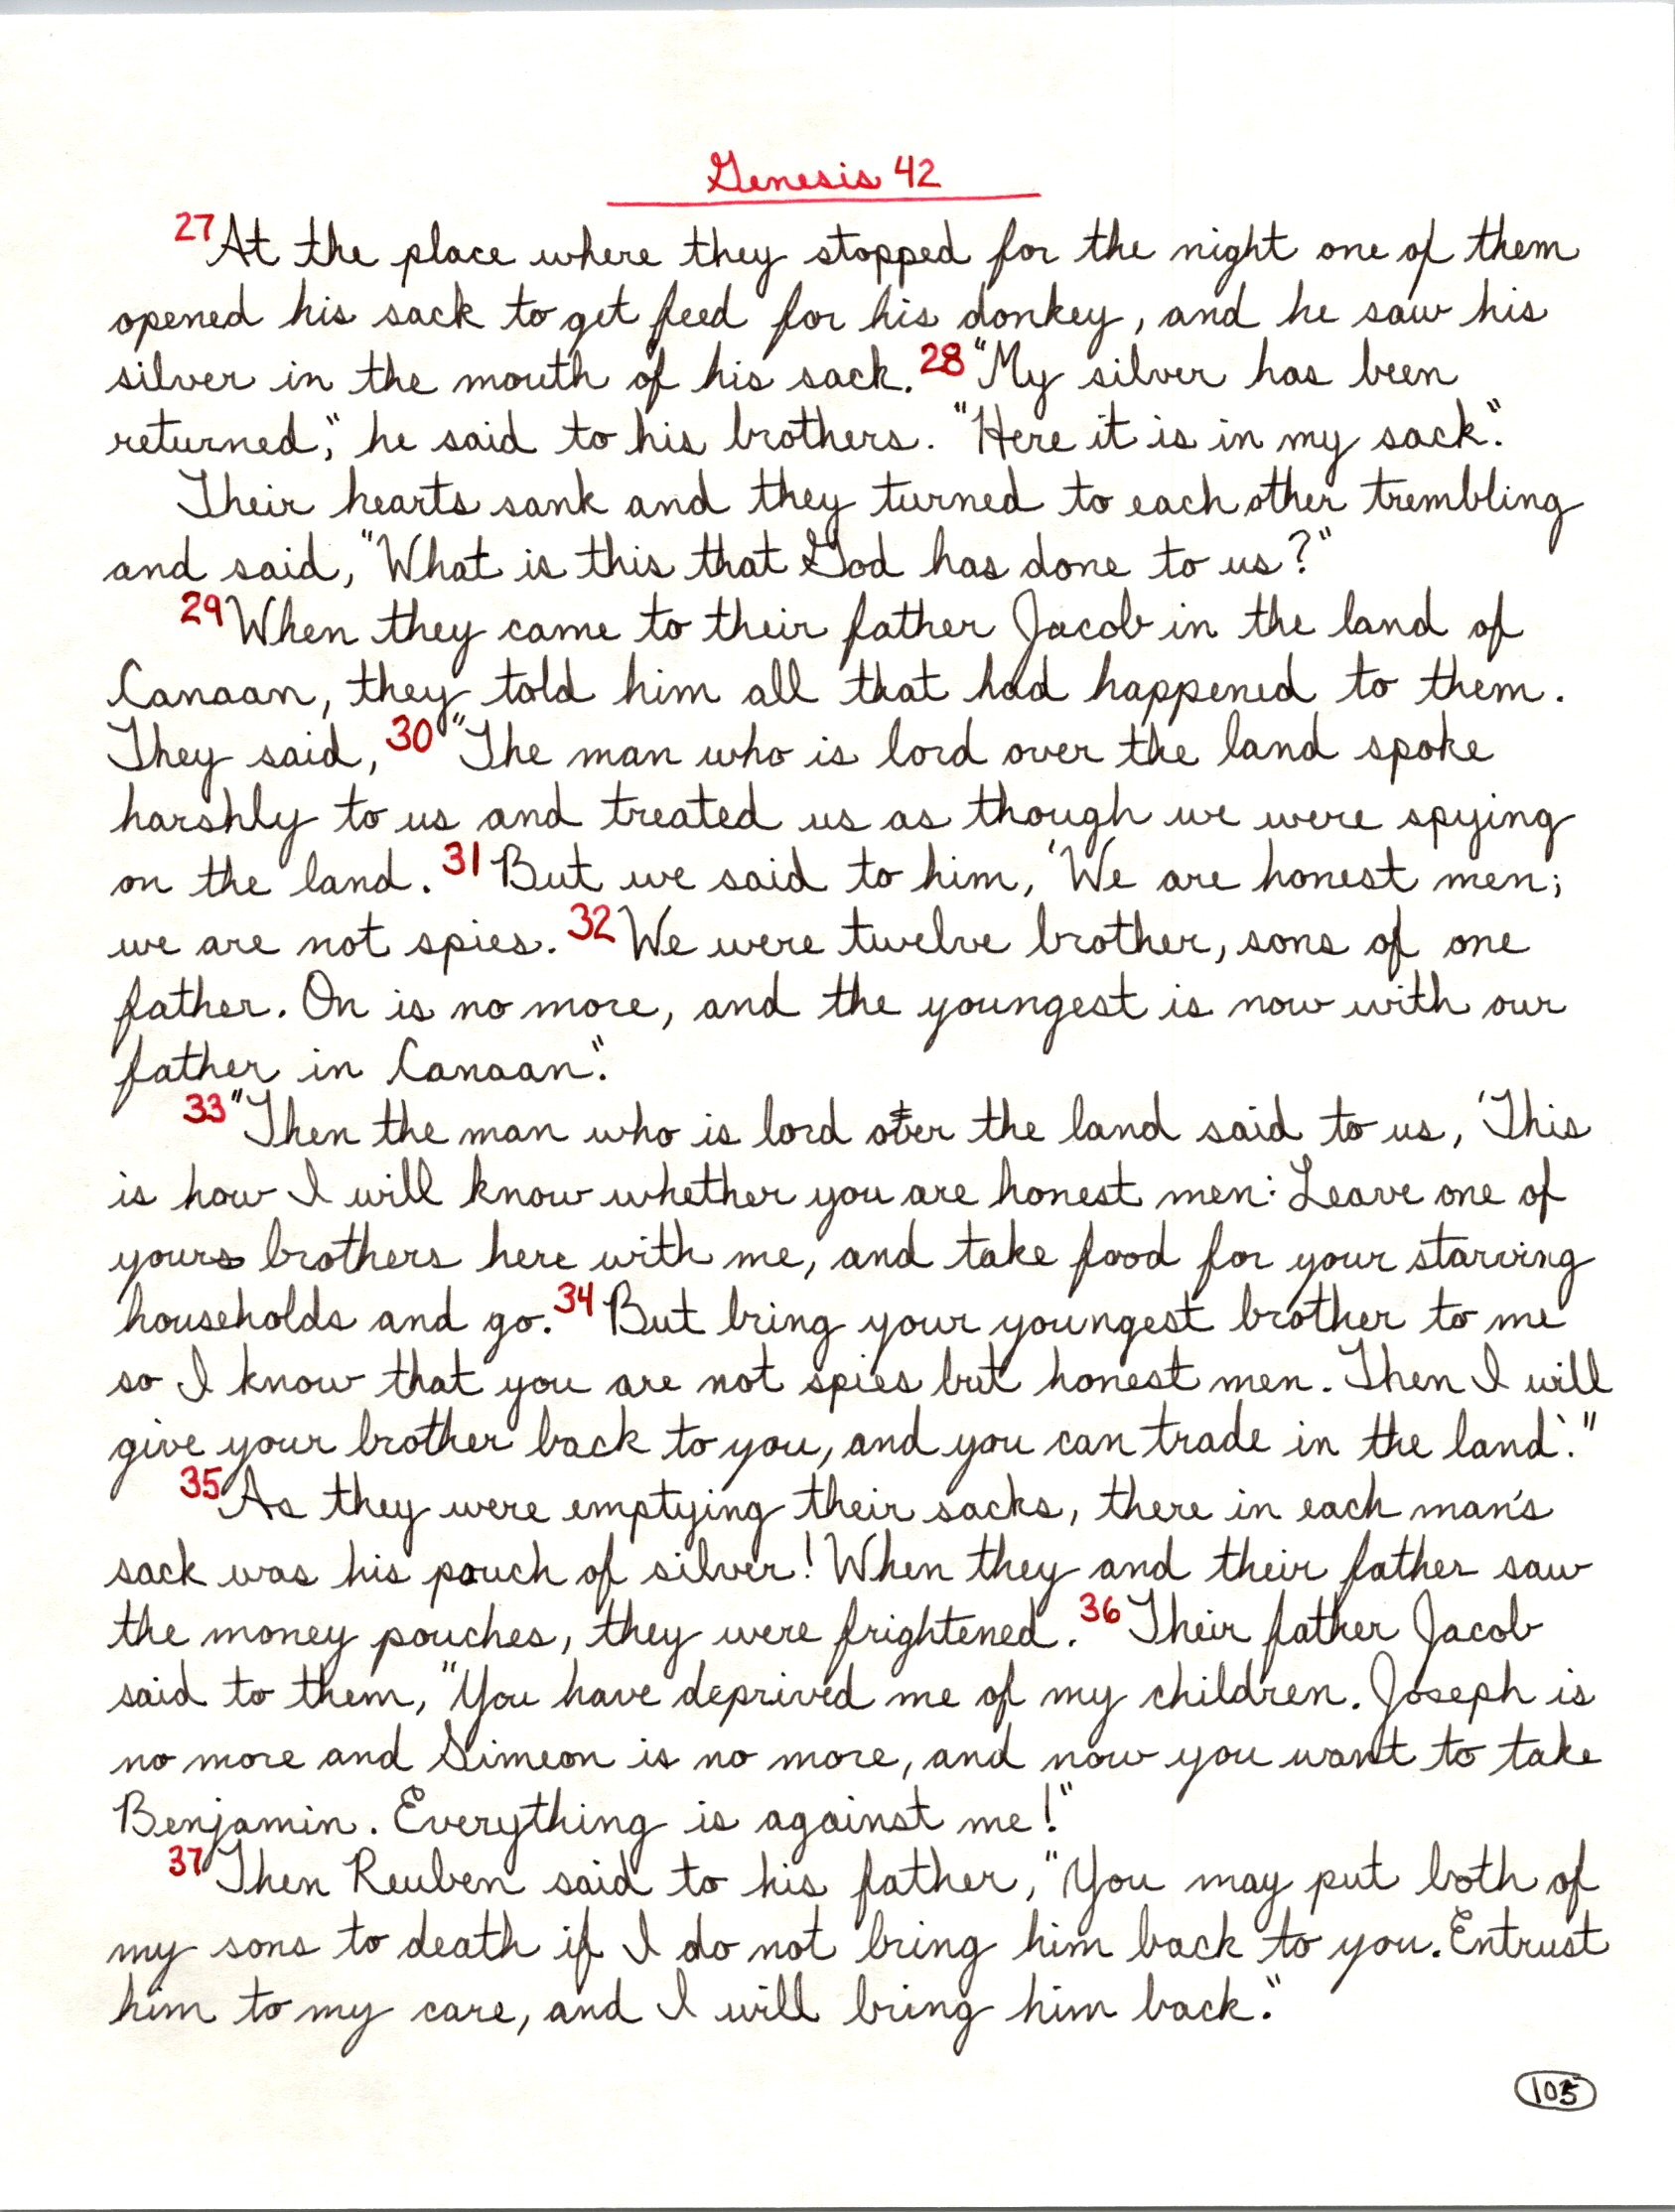 Genesis 42
27 At the place where they stopped for the night one of them
opened his sack to get feed for his donkey, and he saw his
silver in the mouth of his sack. 28 "My silver has been
returned," he said to his brothers. "Here it is in my sack."
Their hearts sank and they turned to each other trembling
and said, "What is this that God has done to us?"
29 When they came to their father Jacob in the land of
Canaan, they told him all that had happened to them.
They said, 30 "The man who is lord over the land spoke
harshly to us and treated us as though we were spying
on the land. 31 But we said to him, 'We are honest men;
we are not spies. 32 We were twelve brother, sons of one
father. On is no more, and the youngest is now with our
father in Canaan."
33 "Then the man who is lord over the land said to us, 'This
is how I will know whether you are honest men: Leave one of
yours brothers here with me, and take food for your starving
households and go. 34 But bring your youngest brother to me
so I know that you are not spies but honest men. Then I will
give your brother back to you, and you can trade in the land.'"
35 As they were emptying their sacks, there in each man's
sack was his pouch of silver! When they and their father saw
the money pouches, they were frightened. 36 Their father Jacob
said to them, "You have deprived me of my children. Joseph is
no more and Simeon is no more, and now you want to take
Benjamin. Everything is against me!"
37 Then Reuben said to his father, "You may put both of
my sons to death if I do not bring him back to you. Entrust
him to my care, and I will bring him back."
105